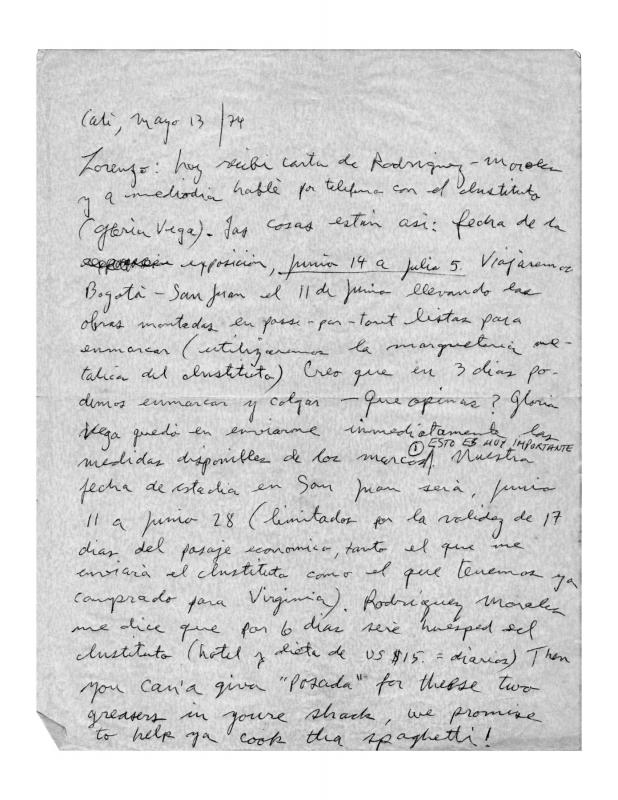 Cali, mayo 13/74
Lorenzo: hoy recibí carta de Rodriguez-Morales
y a mediodia hablé por teléfono con el Instituto
(Gloria Vega). Las cosas están asi: fecha de la
exposición, junio 14 a julio 5. Viajaremos
Bogotá - San Juan el 11 de junio llevando las
obras montadas en passe-par-tout listas para
enmarcar (utilizaremos la marqueteria me-
talica del Instituto) Creo que en 3 dias po-
demos enmarcar y colgar - Que opinas? Gloria
Vega quedó en enviarme inmediatamente las
① ESTO ES MUY IMPORTANTE
medidas disponibles de los marcos. Nuestra
fecha de estadia en San Juan será, junio
11 a junio 28 (limitados por la validez de 17
dias del pasaje economico, tanto el que me
enviará el Instituto como el que tenemos ya
comprado para Virginia). Rodriguez Morales
me dice que por 6 dias seré huesped del
Instituto (hotel y dieta de US $15. = diarios) Then
you can'a giva "posada" for thesse two
greasers in youre shack, we promise
to help ya cook tha spaghetti!